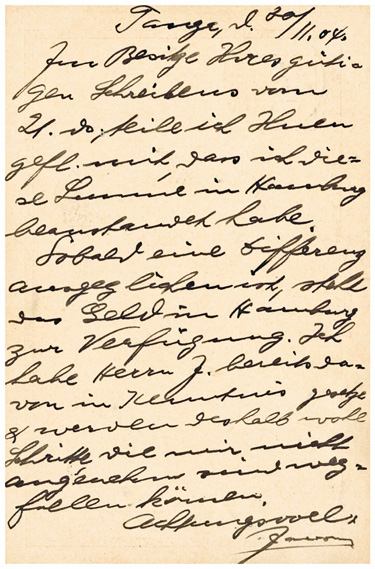 Tanga, d. 30/11.04.
Im Besitze Ihres güti-
gen Schreibens vom
21. ds. teile ich Ihnen
gefl. mit, dass ich die-
se Summe in Hamburg
beanstandet habe.
Sobald eine Differenz
ausgeglichen ist, steht
das Geld in Hamburg
zur Verfügung. Ich
habe Herrn J. bereits da-
von in Kenntnis gesetzt
& werden deshalb wohl
Schritte, die mir nicht
angenehm sind weg-
fallen können.
Achtungsvoll